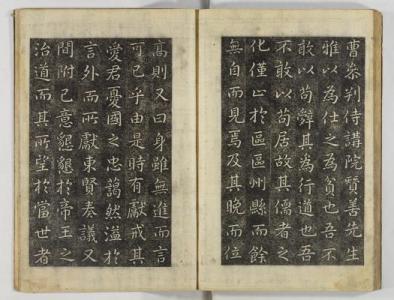 曹叅判侍講院賛善先生
雅以為仕之為貧也吾不
敢以苟辤其為行道也吾
不敢以苟居故其儒者之
化僅止於區區州縣而餘
無自而見焉及其晚而位
高則又曰身雖無進而言
可已乎由是時有獻戒其
愛君憂國之忠藹然溢於
言外而所獻東賢奏議又
間附己意懇懇於帝王之
治道而其所望於當世者